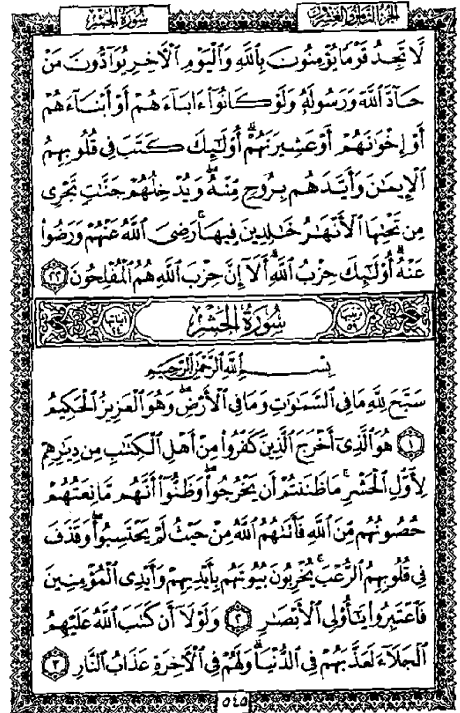 سُورَةُ الحَشْرِ
الجزء الثامن والعشرون
لَّا تَجِدُ قَوْمًا يُؤْمِنُونَ بِٱللَّهِ وَٱلْيَوْمِ ٱلْأَخِرِ يُوَآدُّونَ مَنْ
حَآدَّ ٱللَّهَ وَرَسُولَهُۥ وَلَوْ كَانُوٓا۟ ءَابَآءَهُمْ أَوْ أَبْنَآءَهُمْ
أَوْ إِخْوَٰنَهُمْ أَوْ عَشِيرَتَهُمْ ۚ أُو۟لَٰٓئِكَ كَتَبَ فِى قُلُوبِهِمُ
ٱلْإِيمَٰنَ وَأَيَّدَهُم بِرُوحٍ مِّنْهُ ۖ وَيُدْخِلُهُمْ جَنَّٰتٍ تَجْرِى
مِن تَحْتِهَا ٱلْأَنْهَٰرُ خَٰلِدِينَ فِيهَا ۚ رَضِىَ ٱللَّهُ عَنْهُمْ وَرَضُوا۟
عَنْهُ ۚ أُو۟لَٰٓئِكَ حِزْبُ ٱللَّهِ ۚ أَلَآ إِنَّ حِزْبَ ٱللَّهِ هُمُ ٱلْمُفْلِحُونَ ٢٢
ترتيبها ٥٩ سُورَةُ الحَشْرِ آياتها ٢٤
بِسْمِ ٱللَّهِ ٱلرَّحْمَٰنِ ٱلرَّحِيمِ
سَبَّحَ لِلَّهِ مَا فِى ٱلسَّمَٰوَٰتِ وَمَا فِى ٱلْأَرْضِ ۖ وَهُوَ ٱلْعَزِيزُ ٱلْحَكِيمُ
١ هُوَ ٱلَّذِىٓ أَخْرَجَ ٱلَّذِينَ كَفَرُوا۟ مِنْ أَهْلِ ٱلْكِتَٰبِ مِن دِيَٰرِهِمْ
لِأَوَّلِ ٱلْحَشْرِ ۚ مَا ظَنَنتُمْ أَن يَخْرُجُوا۟ ۖ وَظَنُّوٓا۟ أَنَّهُم مَّانِعَتُهُمْ
حُصُونُهُم مِّنَ ٱللَّهِ فَأَتَىٰهُمُ ٱللَّهُ مِنْ حَيْثُ لَمْ يَحْتَسِبُوا۟ ۖ وَقَذَفَ
فِى قُلُوبِهِمُ ٱلرُّعْبَ ۚ يُخْرِبُونَ بُيُوتَهُم بِأَيْدِيهِمْ وَأَيْدِى ٱلْمُؤْمِنِينَ
فَٱعْتَبِرُوا۟ يَٰٓأُو۟لِى ٱلْأَبْصَٰرِ ٢ وَلَوْلَآ أَن كَتَبَ ٱللَّهُ عَلَيْهِمُ
ٱلْجَلَآءَ لَعَذَّبَهُمْ فِى ٱلدُّنْيَا ۖ وَلَهُمْ فِى ٱلْأَخِرَةِ عَذَابُ ٱلنَّارِ ٣
٥٤٥